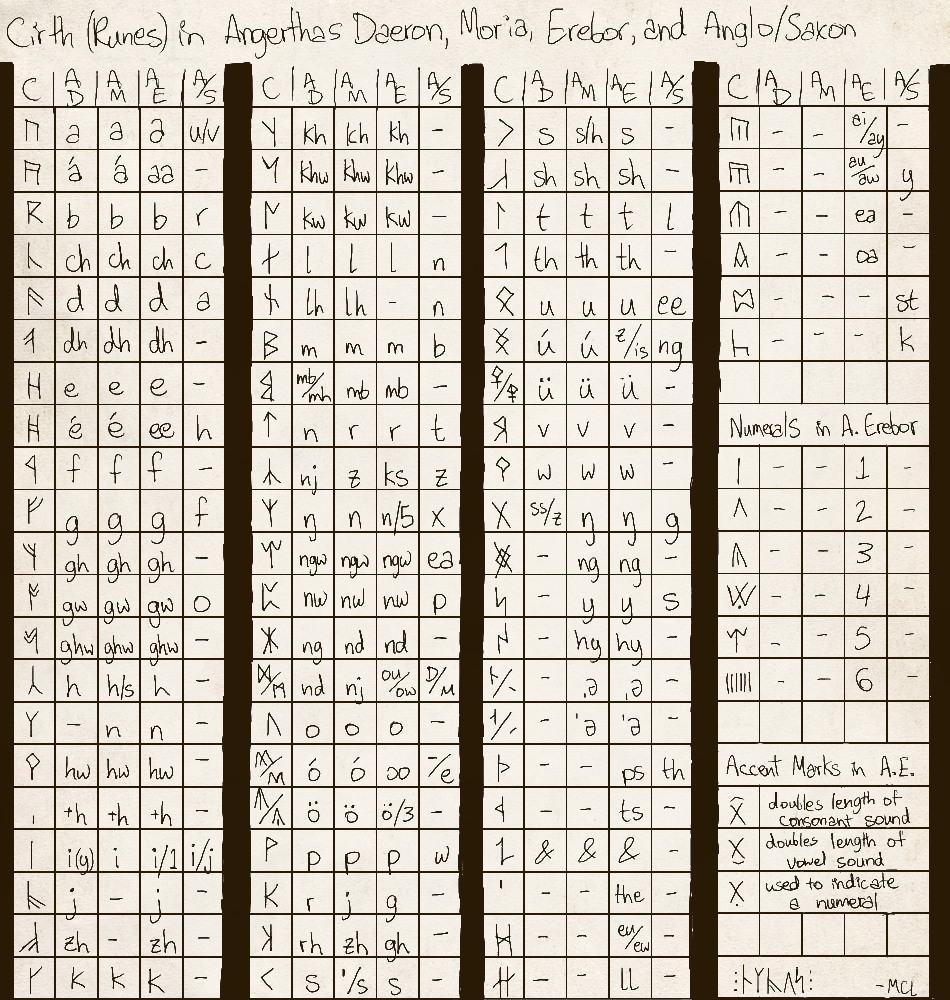 Cirth (Runes) in Angerthas Daeron, Moria, Erebor, and Anglo/Saxon
C AD AM AE A/S
a a a u/v
á á aa -
b b b r
ch ch ch c
d d d a
dh dh dh -
e e e -
é é ee h
f f f -
g g g f
gh gh gh -
gw gw gw o
ghw ghw ghw -
h h/s h -
- n n -
hw hw hw -
+h +h +h -
i(y) i i/1 i/j
j - j -
zh - zh -
k k k -
C AD AM AE A/S
kh kh kh -
khw khw khw -
kw kw kw -
l l l n
lh lh - n
m m m b
mb/mh mb mb -
n r r t
nj z ks z
ŋ n n/5 x
ngw ngw ngw ea
nw nw nw p
ng nd nd -
nd nj ou/ow D/M
o o o -
ó ó oo -/e
ö ö ö/3 -
p p p w
r j g
rh zh gh -
s '/s s -
C AD AM AE A/S
s s/h s -
sh sh sh -
t t t l
th th th -
u u u ee
ú ú z/is ng
ü ü ü -
v v v -
w w w -
ss/z ŋ ŋ g
- ng ng -
- y y s
- hy hy -
- ,ə ,ə -
- 'ə 'ə -
- - ps th
- - ts -
& & & -
- - the -
- - eu/ew -
- - ll -
C AD AM AE A/S
- - ai/ay -
- - au/aw y
- - ea -
- - oa -
- - - st
- - - k
Numerals in A. Erebor
- - 1 -
- - 2 -
- - 3 -
- - 4 -
- - 5 -
- - 6 -
Accent Marks in A.E.
doubles length of
consonant sound
doubles length of
vowel sound
used to indicate
a numeral
-MCL